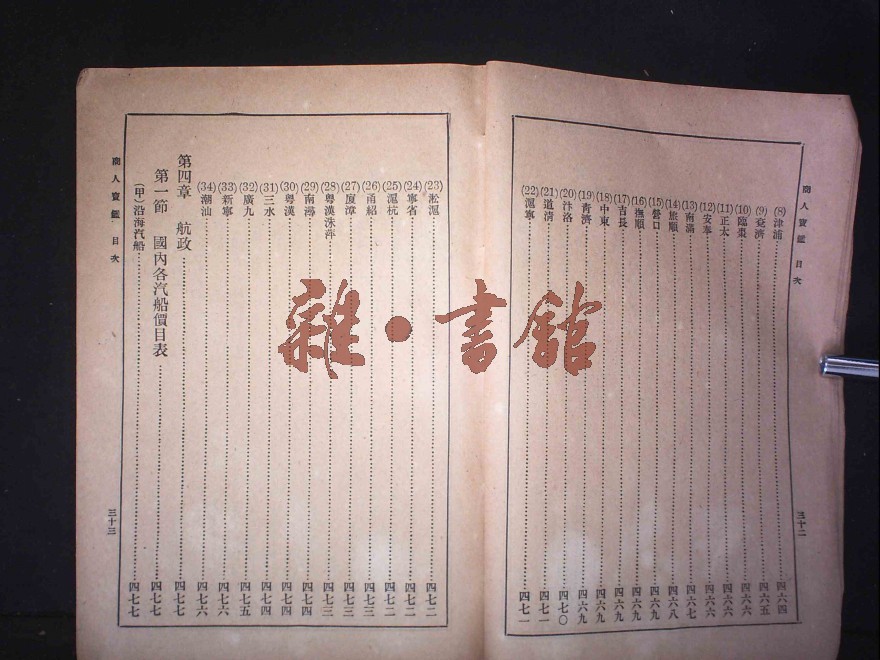 商人寶鑑 目次
三十二
(8)津浦 四六四
(9)兗濟 四六五
(10)臨棗 四六六
(11)正太 四六六
(12)安奉 四六六
(13)南滿 四六七
(14)旅順 四六八
(15)營口 四六九
(16)撫順 四六九
(17)吉長 四六九
(18)中東 四六九
(19)青濟 四六九
(20)汴洛 四七〇
(21)道清 四七一
(22)滬寧 四七一
(23)淞滬 四七二
(24)寧省 四七二
(25)滬杭 四七二
(26)甬紹 四七三
(27)廈漳 四七三
(28)粵漢洙萍 四七三
(29)南潯 四七四
(30)粵漢 四七四
(31)三水 四七四
(32)廣九 四七五
(33)新寧 四七六
(34)潮汕 四七六
第四章 航政 四七七
第一節 國內各汽船價目表 四七七
(甲)沿海汽船 四七七
商人寶鑑 目次
三十三
雜·書館